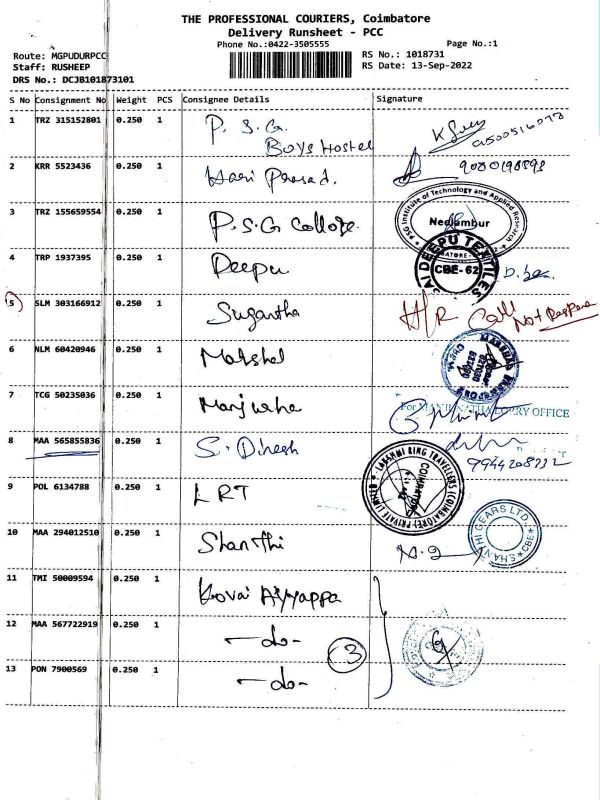 THE PROFESSIONAL COURIERS, Coimbatore
Delivery Runsheet - PCC
Phone No.:0422-3505555
Page No.:1
Route: MGPUDURPCC
RS No.: 1018731
Staff: RUSHEEP
RS Date: 13-Sep-2022
DRS No.: DCJB101873101
S No Consignment No Weight PCS Consignee Details Signature
1 TRZ 315152801 0.250 1 P. S.G. Boys Hostel
2 KRR 5523436 0.250 1 Hari Prasad.
3 TRZ 155659554 0.250 1 P.S.G College.
PSG Institute of Technology and Applied Research
Neelambur
4 TRP 1937395 0.250 1 Deepu
SAI DEEPU TEXTILES
CBE-62
5 SLM 303166912 0.250 1 Sugantha H/R Call Not Respone
6 NLM 60420946 0.250 1
7 TCG 50235036 0.250 1
For MANJUNATHA LORRY OFFICE
8 MAA 565855836 0.250 1 S. Dinesh 9944208732
9 POL 6134788 0.250 1 LRT
LAKSHMI RING TRAVELLERS (COIMBATORE) PRIVATE LIMITED
COIMBATORE
10 MAA 294012510 0.250 1 Shanthi
SHANTHI GEARS LTD.
CBE
11 TMI 50009594 0.250 1 Kovai Ayyappa
12 MAA 567722919 0.250 1 -do-
3
13 PON 7900569 0.250 1 -do-